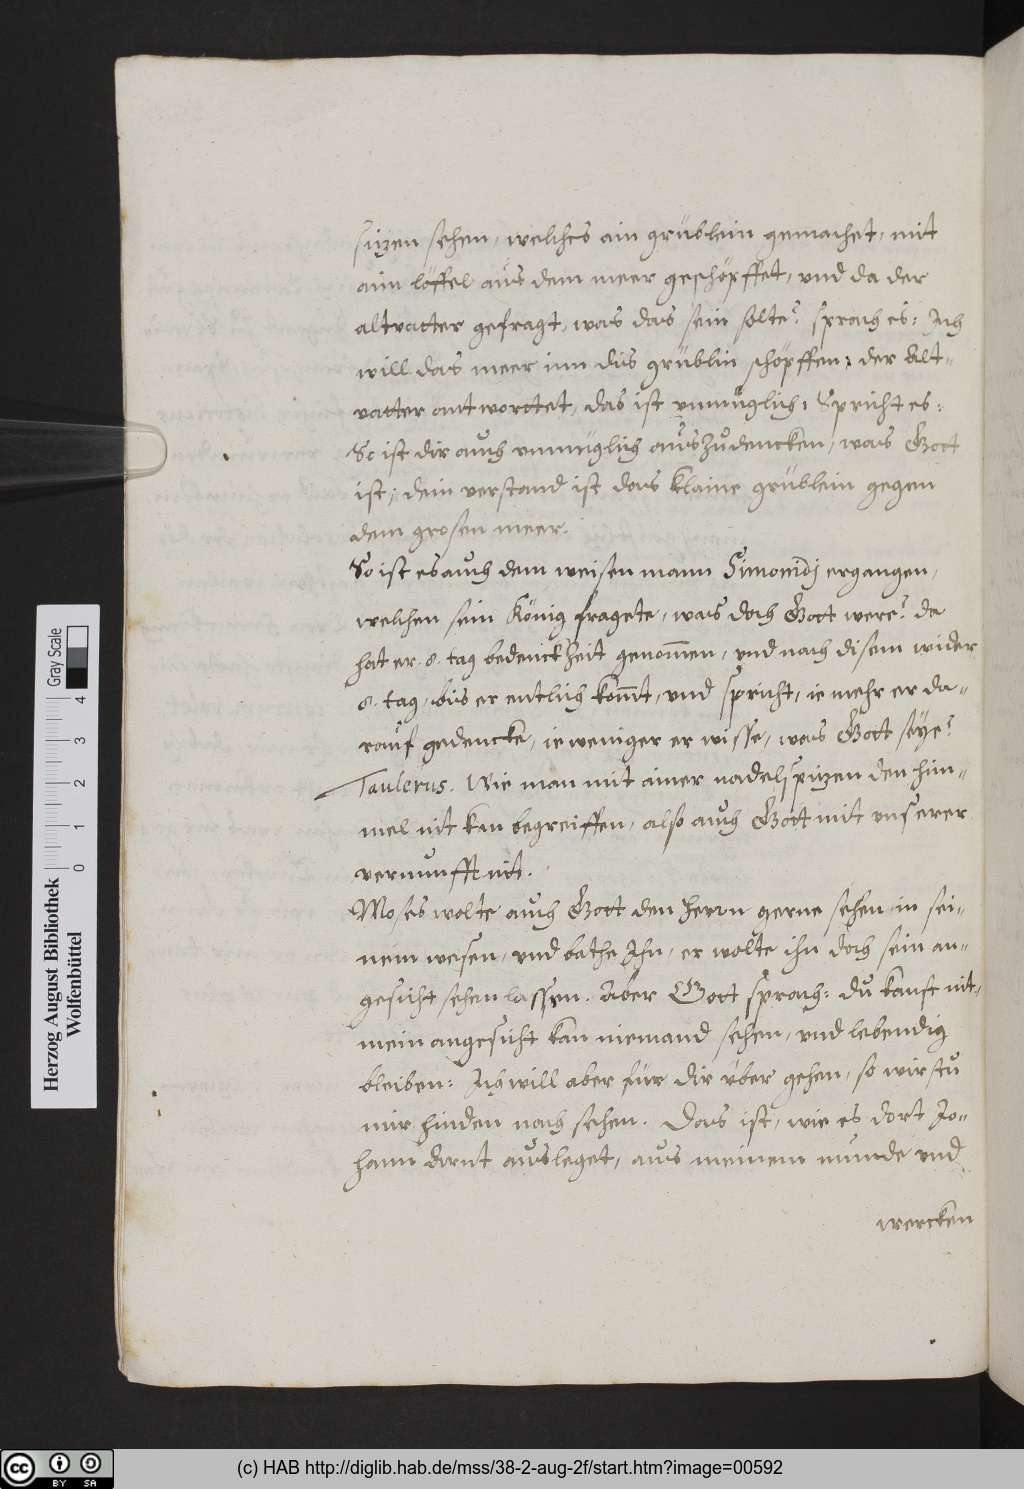 sizen sehen, welches ain grüblein gemachet, mit
aim löffel aus dem meer geschöpffet, und da der
altvatter gefragt, was das sein solte? sprach es: Ich
will das meer inn dis grüblin schöpffen; der Alt-
vatter antworttet, das ist unmüglich: Spricht es:
So ist dir auch unmüglich auszudencken, was Gott
ist; dein verstand ist das klaine grüblein gegen
dem grosen meer.
So ist es auch dem weisen mann Simonidj ergangen,
welchen sein König fragete, was doch Gott were? da
hat er .8. tag bedenckzeit genom̄en, und nach disem wider
8. tag, bis er entlich kom̄t, und spricht, ie mehr er da-
rauf gedencke, ie weniger er wisse, was Gott seÿe?
Taulerus. Wie man mit ainer nadelspizen den him-
mel nit kan begreiffen, also auch Gott mit unserer
vernunfft nit.
Moses wolte auch Gott den Herrn gerne sehen in sei-
nem wesen, und bathe Ihn, er wolte ihn doch sein an-
gesicht sehen lassen. Aber Gott sprach: du kanst nit,
mein angesicht kan niemand sehen, und lebendig
bleiben: Ich will aber für dir über gehen, so wirstu
mir hinden nach sehen. Das ist, wie es dort Jo-
hann Arnt ausleget, aus meinem munde und
wercken
Herzog August Bibliothek
Wolfenbüttel
Gray Scale
0 1 2 3 4
cc BY SA
(c) HAB http://diglib.hab.de/mss/38-2-aug-2f/start.htm?image=00592